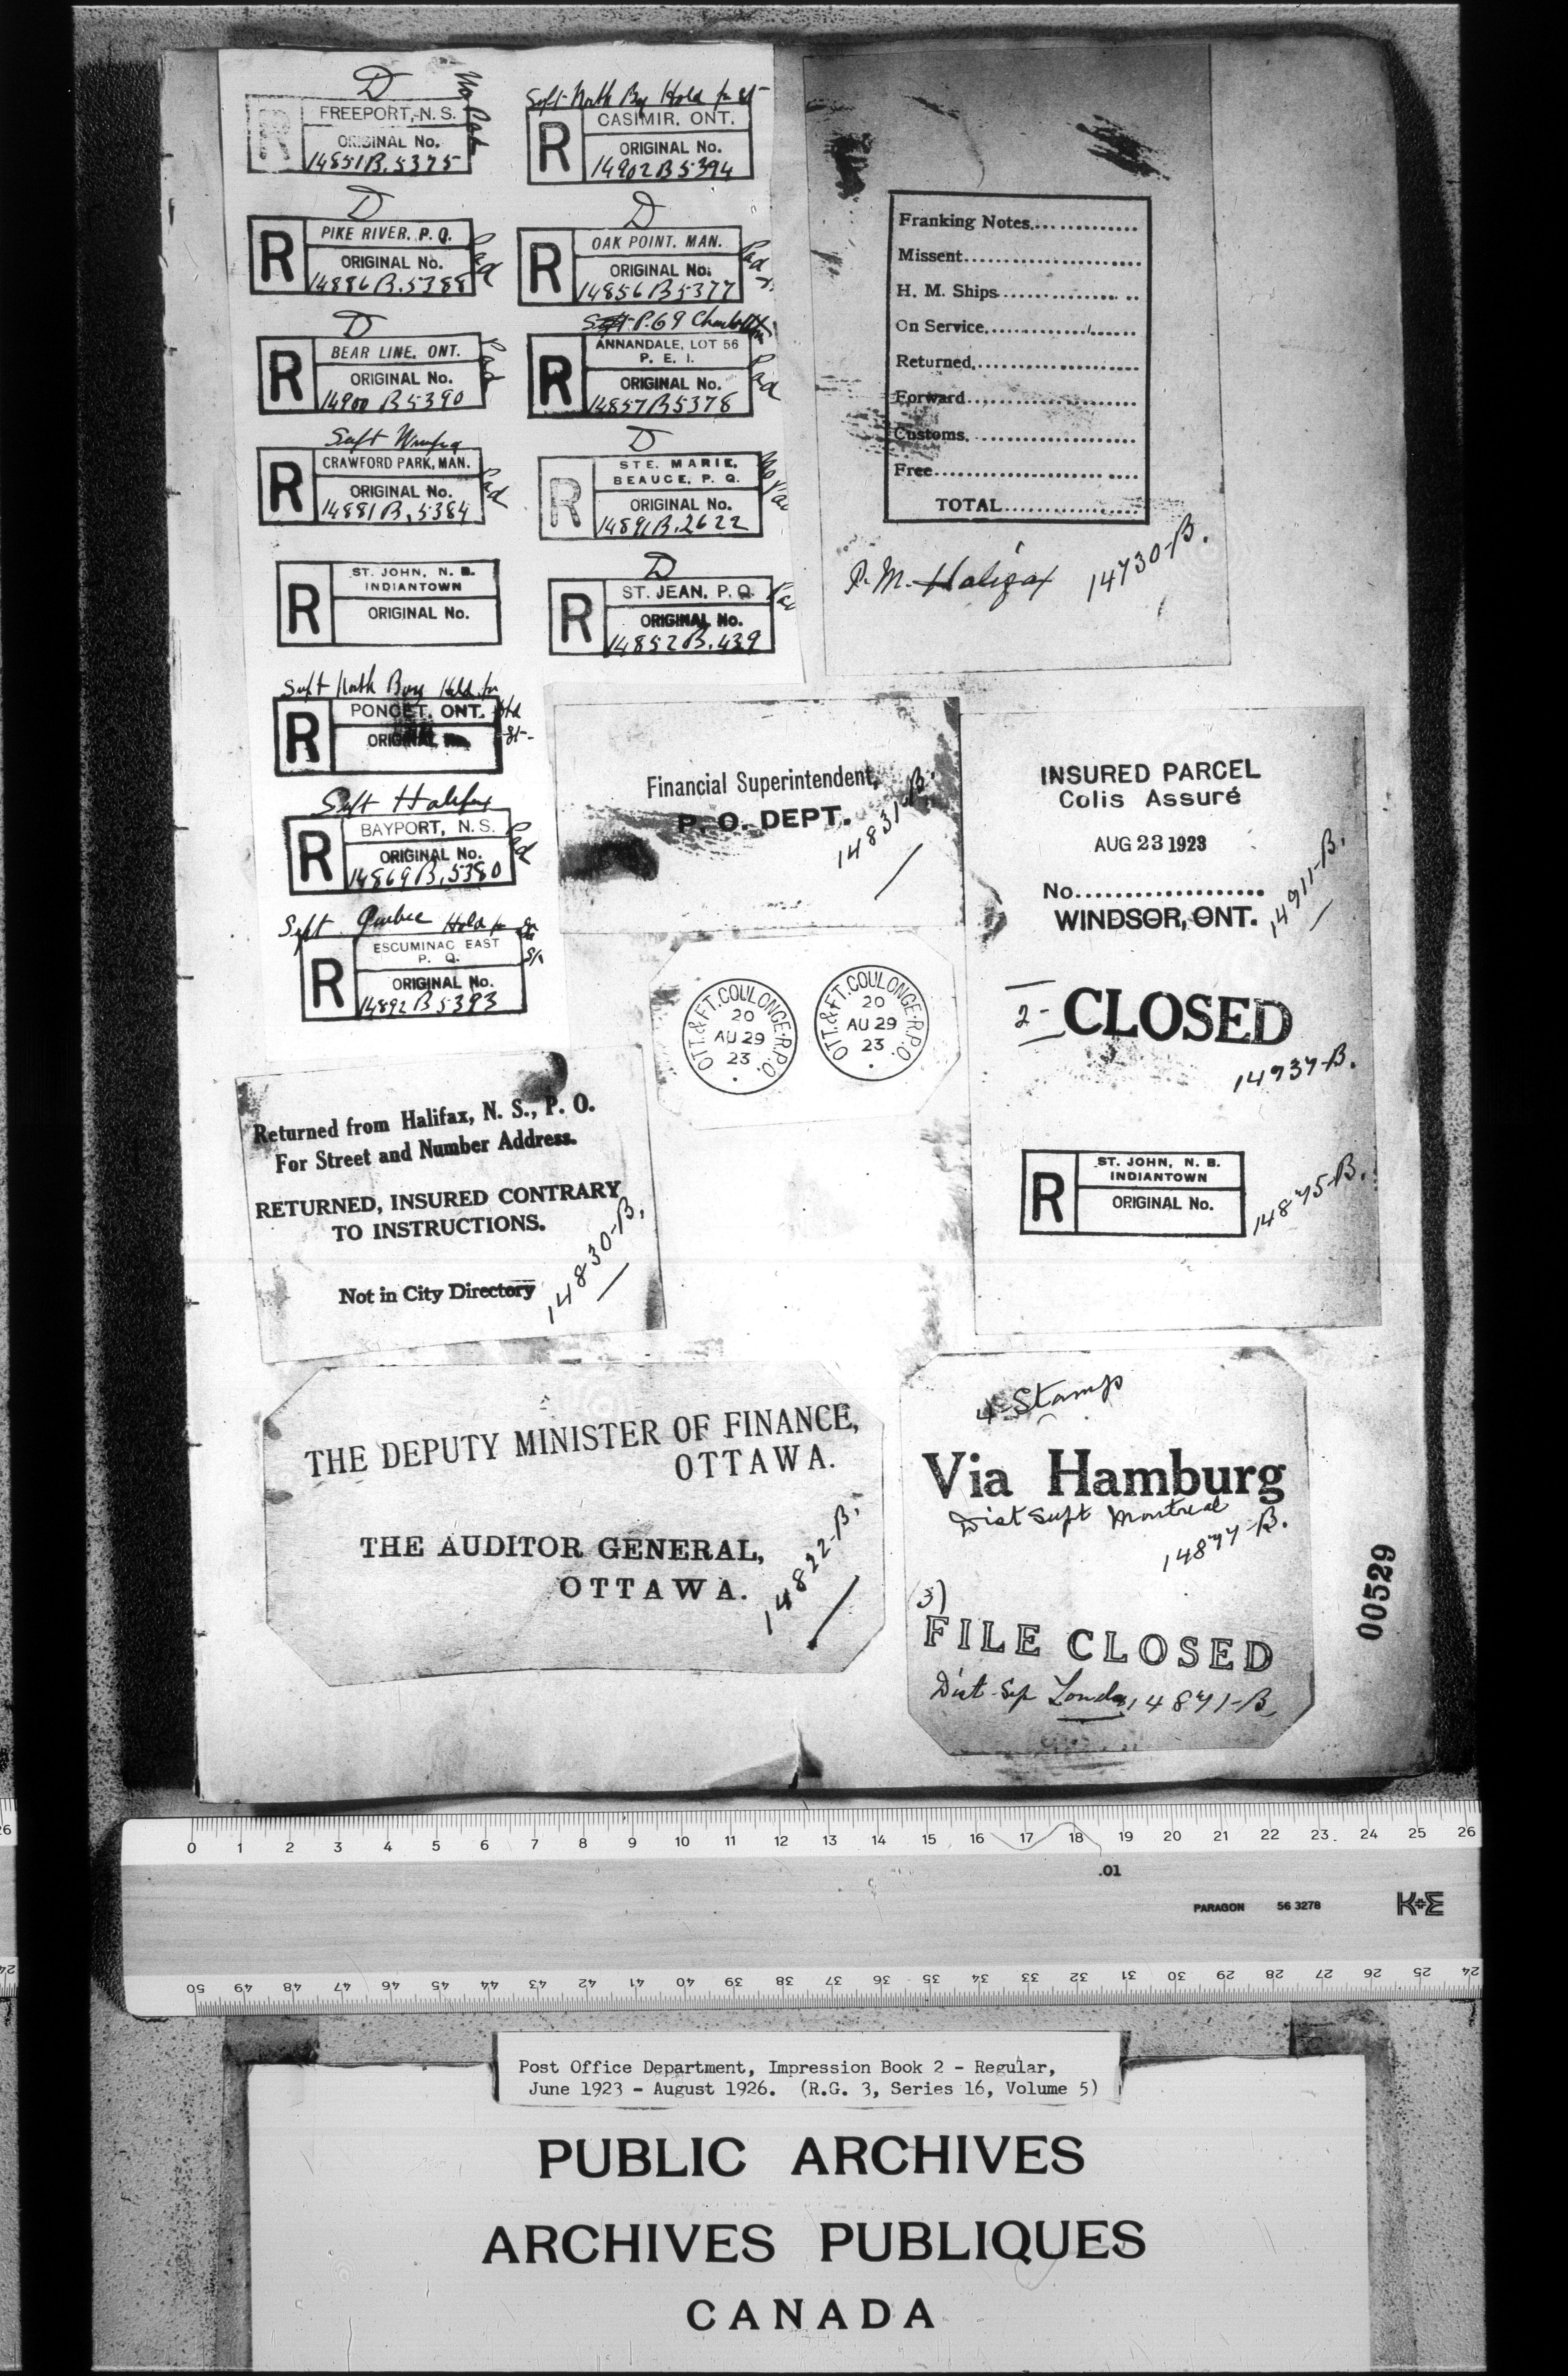 D
No Pad
FREEPORT, N. S.
R
ORIGINAL No.
14851B.5375
D
PIKE RIVER, P. Q.
Pad
R
ORIGINAL No.
14886B.5388
D
BEAR LINE, ONT.
Pad
R
ORIGINAL No.
14900 B5390
Supt Winnipeg
CRAWFORD PARK, MAN.
Pad
R
ORIGINAL No.
14881B.5384
ST. JOHN, N. B.
INDIANTOWN
R
ORIGINAL No.
Supt North Bay Hold for
PONCET, ONT.
R
ORIGINAL No.
Supt Halifax
BAYPORT, N. S.
Pad
R
ORIGINAL No.
14869B.5380
Supt Quebec Hold for
ESCUMINAC EAST
P. Q.
R
ORIGINAL No.
14892B5393
Supt North Bay Hold for
CASIMIR, ONT.
R
ORIGINAL No.
14902B5394
D
OAK POINT, MAN.
Pad
R
ORIGINAL No.
14856B5377
Supt P.69
ANNANDALE, LOT 56
P. E. I.
Pad
R
ORIGINAL No.
14857B5378
D
STE. MARIE,
BEAUCE, P. Q.
No Pad
R
ORIGINAL No.
14891B.2622
D
ST. JEAN, P. Q.
Pad
R
ORIGINAL No.
14852B.439
Franking Notes
Missent
H. M. Ships
On Service
Returned
Forward
Customs
Free
TOTAL
P.M. Halifax 14730-B.
Financial Superintendent,
P. O. DEPT.
14831-B.
INSURED PARCEL
Colis Assuré
AUG 23 1923
No.
WINDSOR, ONT.
14911-B.
2- CLOSED
14937-B.
ST. JOHN, N. B.
INDIANTOWN
R
ORIGINAL No.
14875-B.
OTT. & FT. COULONGE. R.P.O.
20
AU 29
23
OTT. & FT. COULONGE. R.P.O.
20
AU 29
23
Returned from Halifax, N. S., P. O.
For Street and Number Address.
RETURNED, INSURED CONTRARY
TO INSTRUCTIONS.
Not in City Directory
14830-B.
THE DEPUTY MINISTER OF FINANCE,
OTTAWA.
THE AUDITOR GENERAL,
OTTAWA.
14822-B.
4 Stamps
Via Hamburg
Dist Supt Montreal
14877-B.
(3)
FILE CLOSED
Dist Sup London 14871-B
00529
0 1 2 3 4 5 6 7 8 9 10 11 12 13 14 15 16 17 18 19 20 21 22 23 24 25 26
.01
PARAGON 56 3278 K+E
50 49 48 47 46 45 44 43 42 41 40 39 38 37 36 35 34 33 32 31 30 29 28 27 26 25 24
Post Office Department, Impression Book 2 - Regular,
June 1923 - August 1926. (R.G. 3, Series 16, Volume 5)
PUBLIC ARCHIVES
ARCHIVES PUBLIQUES
CANADA